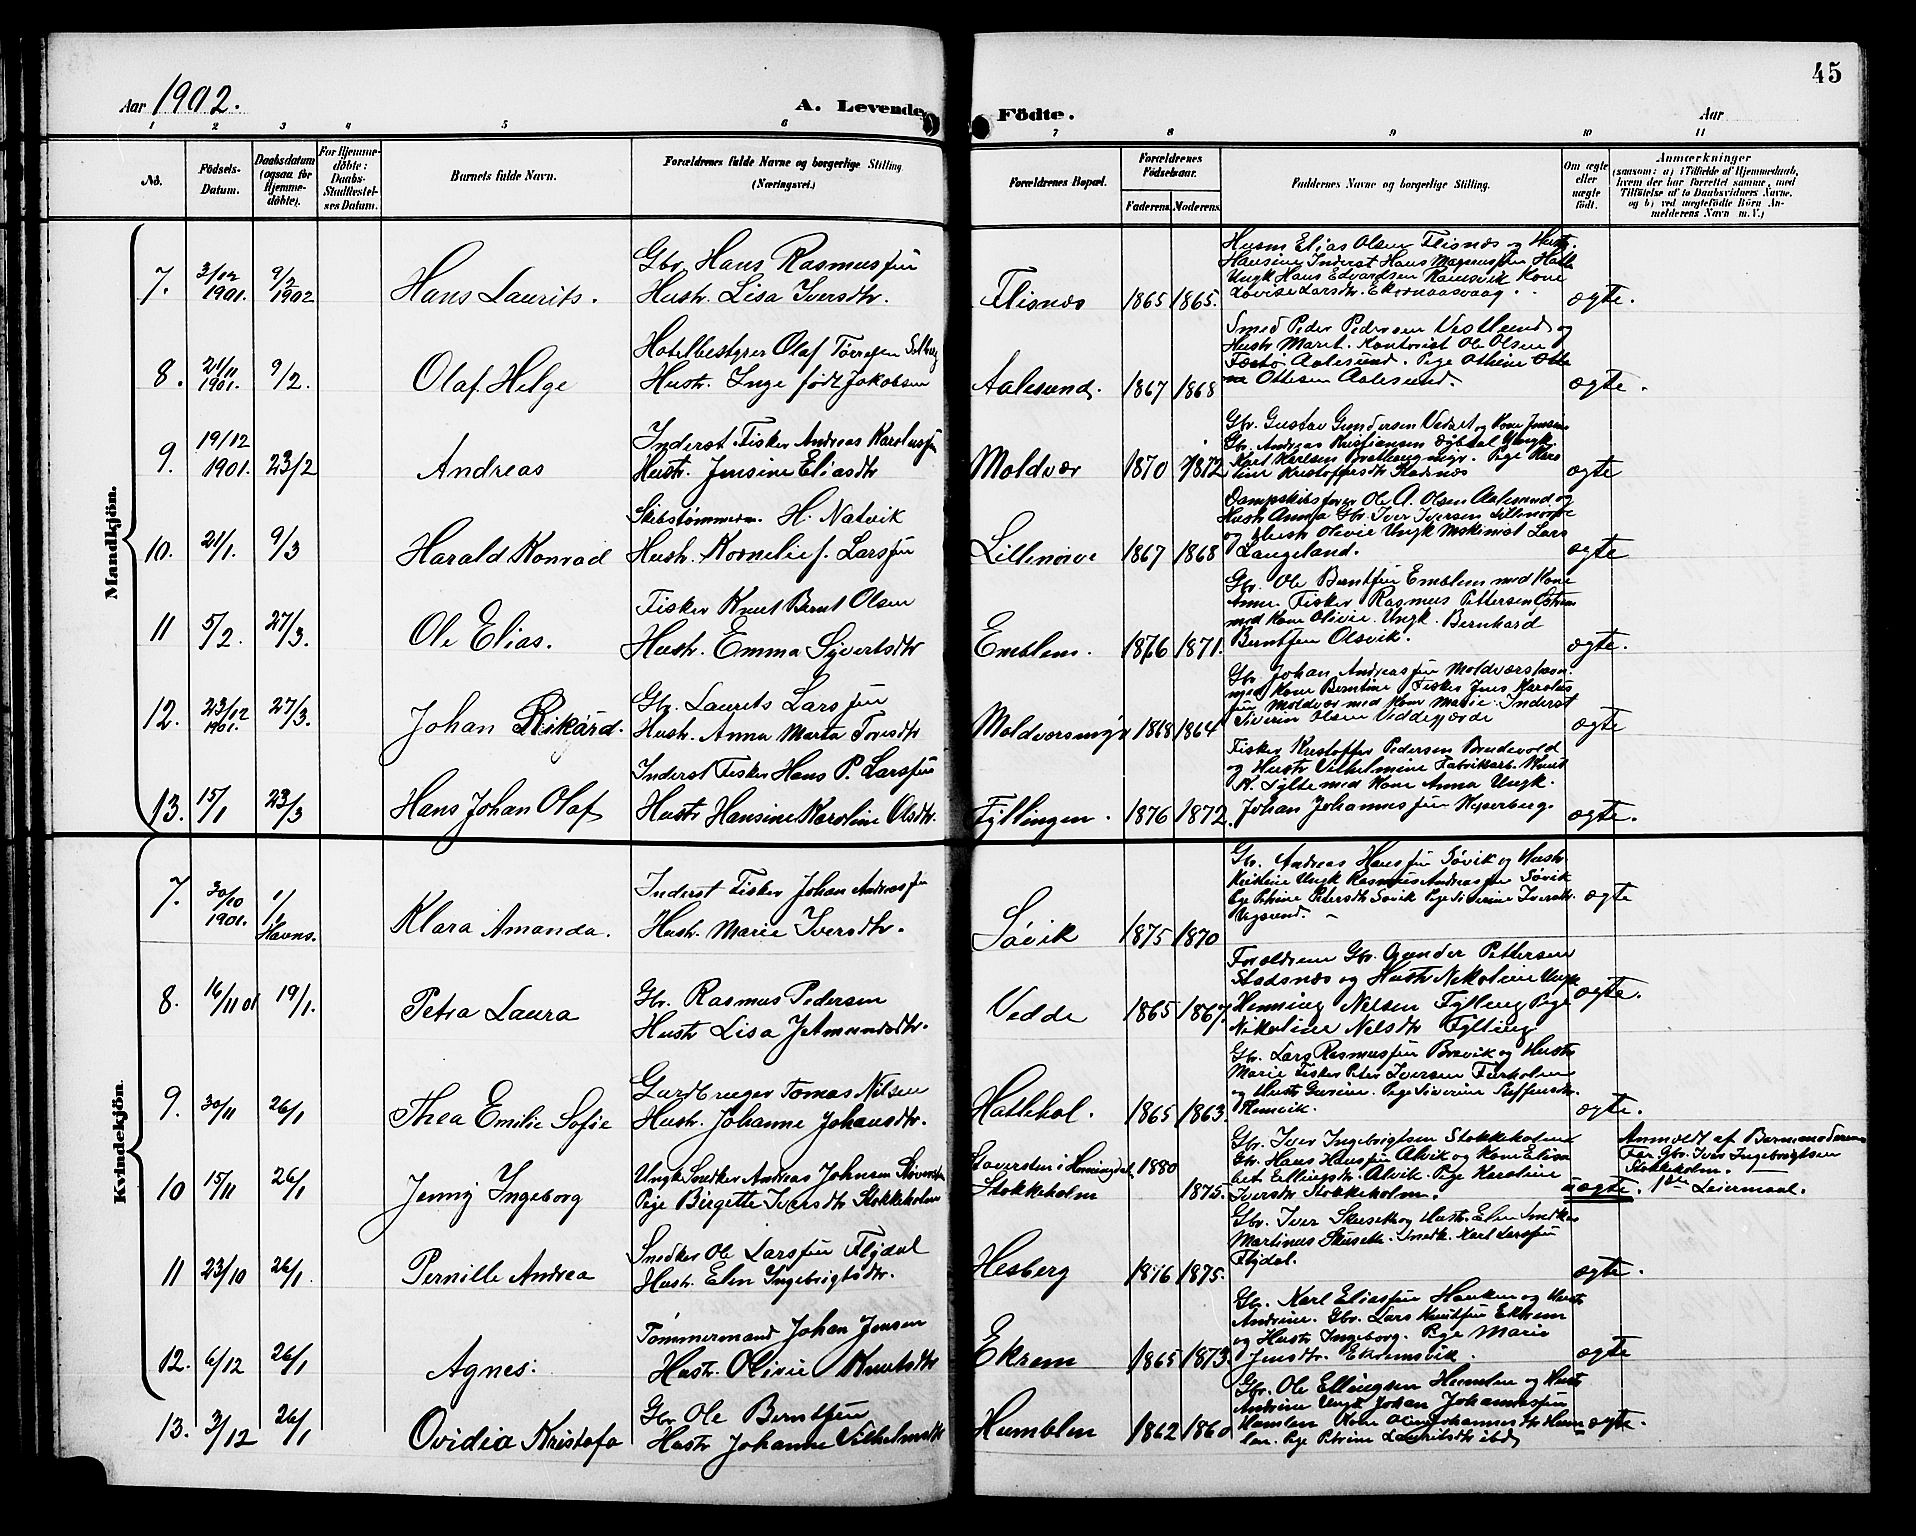 Aar 1902.
A. Levende Födte.
Aar
45
1 2 3 4 5 6 7 8 9 10 11
No.
Födsels-Datum.
Daabsdatum (ogsaa for Hjemme-döbte).
For Hjemme-döbte: Daabs-Stadfæstel-ses Datum.
Barnets fulde Navn.
Forældrenes fulde Navne og borgerlige Stilling (Næringsvei.)
Forældrenes Bopæl.
Forældrenes Födselsaar.
Faderens. Moderens.
Faddernes Navne og borgerlige Stilling.
Om ægte eller uægte födt.
Anmærkninger
(saasom: a) i Tilfælde af Hjemmedaab,
hvem der har forrettet samme, med
Tilföielse af to Daabsvidners Navne.
og b) ved uægtefödte Börn An-
melderens Navn m. V.)
Mandkjön.
7. 3/12 1901. 9/2 1902 Hans Laurits. Gbr. Hans Rasmussen
Hustr. Lisa Iversdtr. Flisnæs 1865 1865. ægte.
Husm Elias Olsen Flisnæs og Hustr.
Hansine Inderst Hans Magnussen
Ungk Hans Edvardsen Ramsvik Kone
Lovise Larsdtr. Ekornaasvaag.
8. 21/11 1901. 9/2. Olaf Helge Hotelbestyrer Olaf Solberg
Hustr. Inge født Jakobsen Aalesund. 1867 1868 ægte.
Smed Peder Pedersen Vestlund og
Hustr Maret. Kontorist Ole Olsen
Aalesund. Pige Othine
Ottesen Aalesund.
9. 19/12 1901. 23/2 Andreas Inderst Fisker Andreas Karolussen
Hustr. Jensine Eliasdtr Moldvær 1870 1872 ægte
Gbr. Gustav Gundersen Vedset og Kone Jensine
Gbr. Andreas Kristiansen Ungk
Karl Karlsen. Pige
Kristoffersdtr
10. 21/1. 9/3 Harald Konrad Skibstømmerm. H. Natvik
Hustr. Kornelie f. Larssen Lillenøve 1867 1868 ægte
Dampskibsfører Ole A. Olsen Aalesund og
Hustr Anna Gbr. Iver Iversen
og Hustr Olivie Ungk Maskinist Lars
Langeland.
11 5/2. 27/3. Ole Elias. Fisker Knut Bernt Olsen
Hustr. Emma Sivertsdtr Emblem. 1876 1871. ægte.
Gbr. Ole Berntsen Emblem med Kone
Anne. Fisker Rasmus Pettersen
med Kone Olivie. Ungk. Bernhard
Berntsen Olsvik.
12. 23/12 1901. 27/3. Johan Rikard. Gbr. Laurits Larssen
Hustr. Anna Marta Toresdtr Moldværsmyr 1868 1864 ægte
Gbr. Johan Andreassen
med Kone Berntine Fisker Jens Karolus
sen Moldvær med Kone Marie. Inderst
Siverin Olsen Veddegjærde
13. 15/1 23/3 Hans Johan Olaf Inderst Fisker Hans P. Larssen
Hustr Hansine Karoline Olsdtr. Fyllingen. 1876 1872. ægte.
Fisker Kristoffer Pedersen Brudevold
og Hustr Vilhelmine Fabrikarb. Knut
K. Sylte med Kone Anna Ungk.
Johan Johannessen
Kvindekjön.
7. 30/10 1901. 1/1 Havns. Klara Amanda. Inderst Fisker Johan Andreassen
Hustr. Marie Iversdtr. Søvik 1875 1870 ægte
Gbr. Andreas Hanssen Søvik og Hustr.
Kristine Ungk Rasmus Andreassen Søvik
Pige Petrine Petersdtr Søvik Pige Siverine Iversdtr.
Vegsund.
8. 16/11 01 19/1. Petra Laura Gbr. Rasmus Pedersen
Hustr Lisa J. Amundsdtr. Vedde 1865 1867. ægte.
Forældrene Gbr. Gunder Pettersen
Stadsnæs og Hustr Nikoline Ungk
Henning Nilsen Fylling Pige
Nikoline Nilsdtr Fylling
9. 30/11 26/1 Thea Emilie Sofie Gardbruger Tomas Nilsen
Hustr. Johanne Johansdtr. Hatlehol. 1865 1863. ægte.
Gbr. Lars Rasmussen Brevik og Hustr
Marie Fisker Peter Iversen
og Hustr Gurine. Pige Siverine Steffensdtr.
10 15/11 26/1 Jenny Ingeborg Ungk Snedker Andreas Johnsen
Pige Birgette Iversdtr Stokkeholm i Horningdal 1880
Stokkeholm 1875. uægte.
Gbr. Iver Ingebrigtsen Stokkeholm
Gbr. Hans Hanssen Alvik og Kone Elisa
bet Ellingsdtr. Alvik Pige Karoline
Iversdtr Stokkeholm.
Anmeldt af Barnemoderens
Far Gbr. Iver Ingebrigtsen
Stokkeholm.
1ste Leiermaal.
11 23/10 26/1. Pernille Andrea Snedker Ole Larssen Flydal
Hustr. Elen Ingebrigtsdtr. Hesberg 1876 1875. ægte.
Gbr. Iver og Hustr. Elen Snedker
Martinus Snedk. Karl Larssen
Flydal.
12. 6/12 26/1 Agnes. Tømmermand Johan Jensen
Hustr. Olivie Knutsdtr Ekrem 1865 1873. ægte
Gbr. Karl Eliassen og Hustr
Andrine. Gbr. Lars Knutsen Ekrem
og Hustr Ingeborg. Pige Marie
Jensdtr. Ekremsvik.
13. 3/12 26/1 Ovidia Kristofa Gbr Ole Berntsen
Hustr Johanne Vilhelmsdtr Humblen 1862 1860 ægte.
Gbr. Ole Ellingsen Humlen og Hustr
Andrine Ungk Johan Johannessen
Humlen Johannesdtr Hum
len. Pige Petrine Lauritsdtr ibd